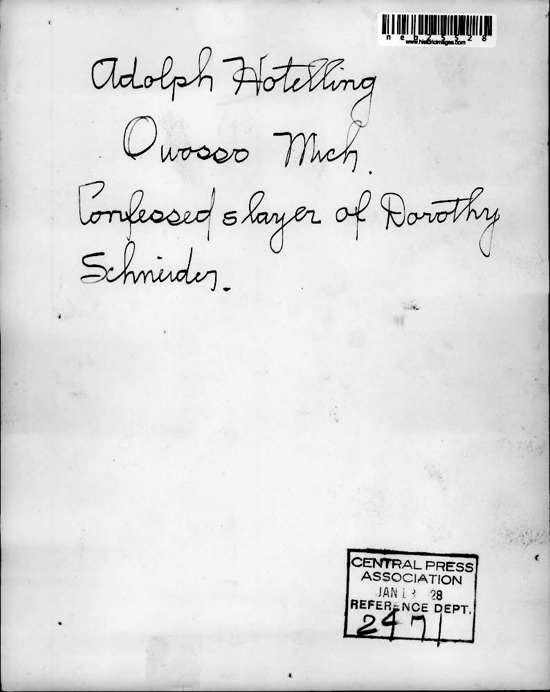 neb25528
www.historicimages.com
Adolph Hotelling
Owosso Mich.
Confessed slayer of Dorothy
Schneider.
CENTRAL PRESS
ASSOCIATION
JAN 28
REFERENCE DEPT.
2471